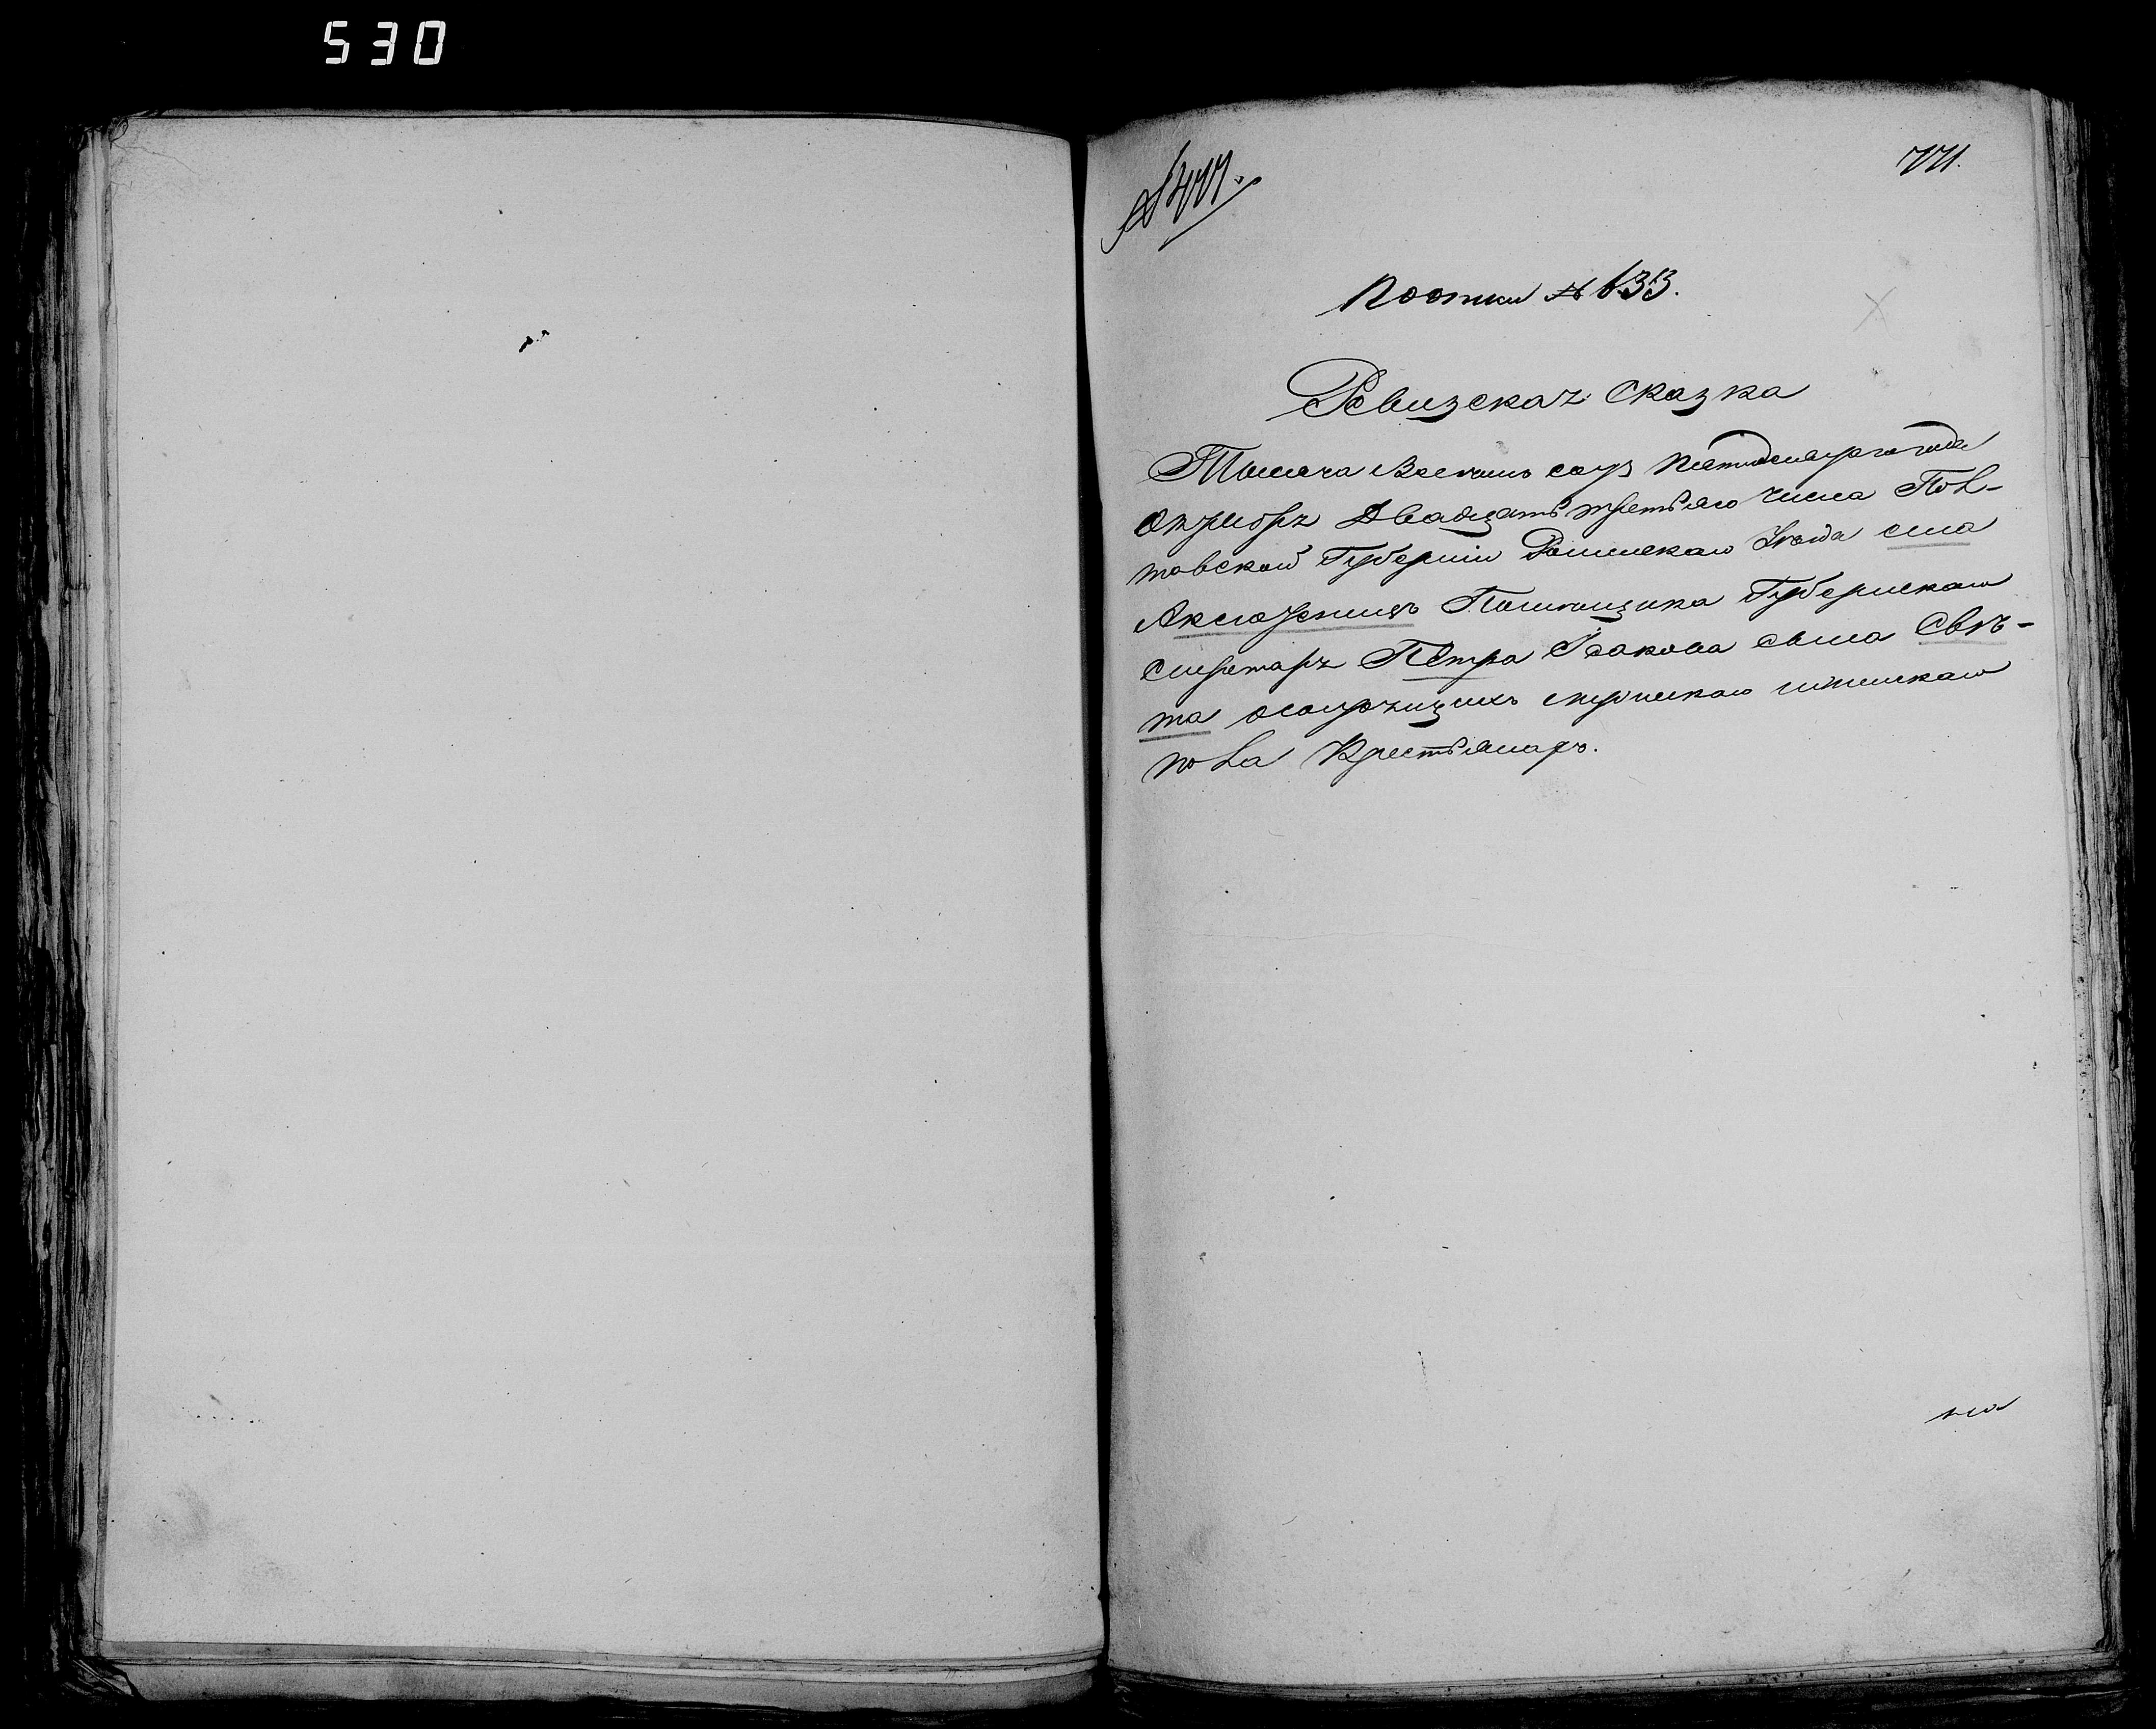 530
771.
№ 411.
Почти № 633.
Ревизская Сказка
Тысяча Восемь сотъ пятнадцатаго года
Октября Двадцать третьяго числа Пол-
тавской Губерніи Роменскаго Уезда села
Аксютинецъ Помещика Губернскаго
Секретаря Петра Исакова сына Свѣ-
та о состоящихъ мужескаго и женскаго
пола Крестьянахъ.